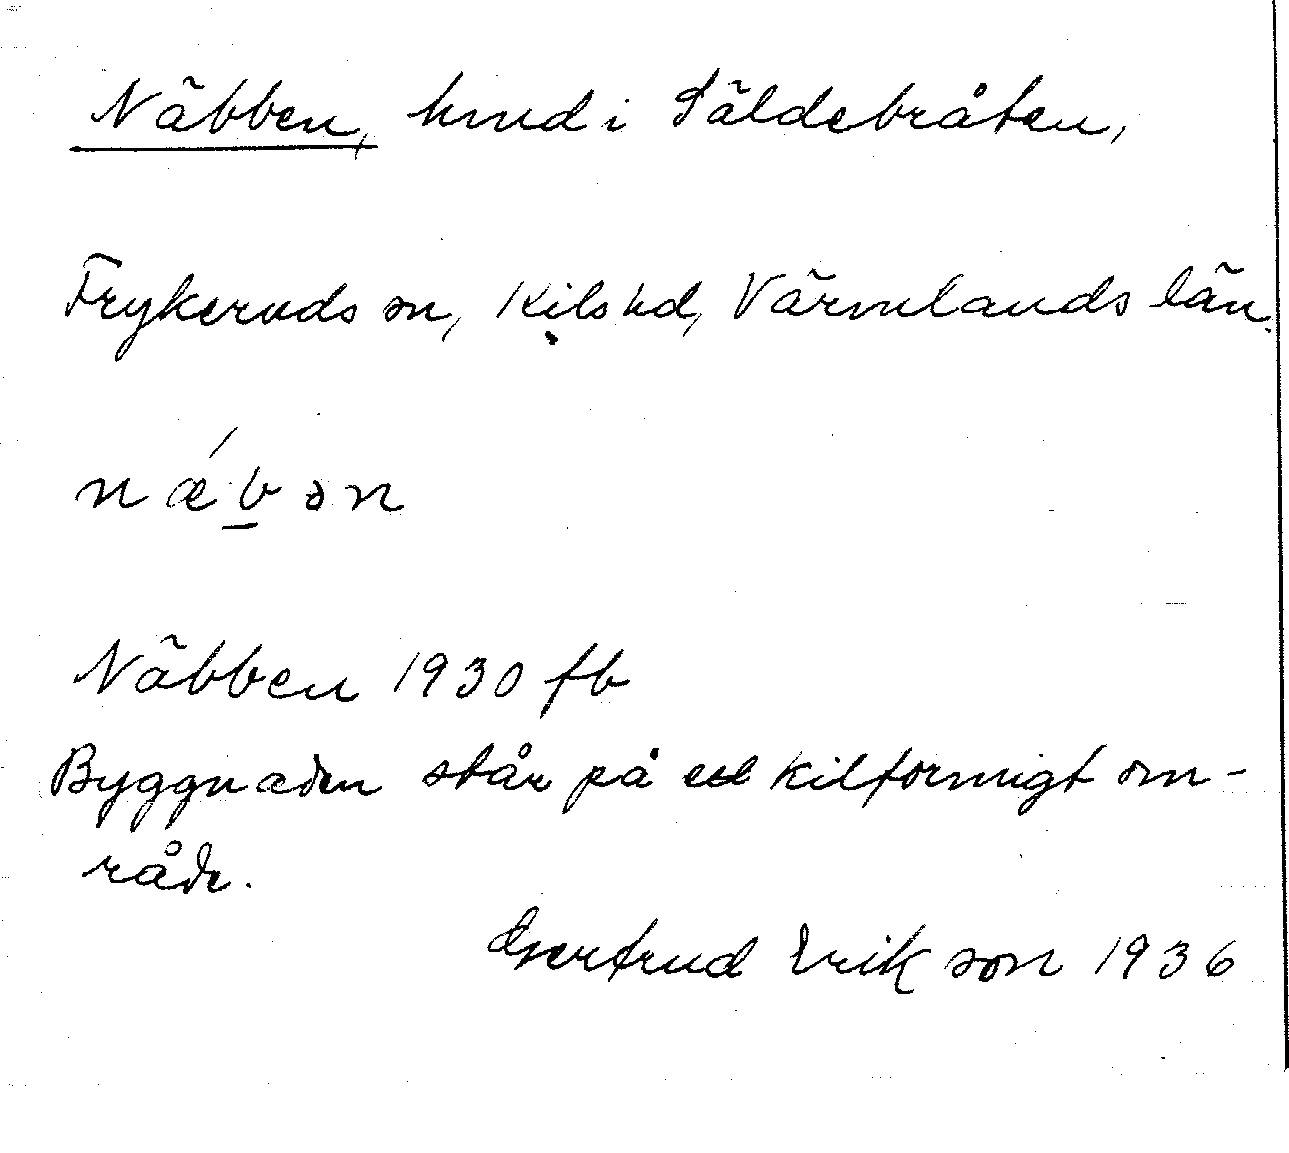 Näbben, hmd i Säldebråten,
Frykeruds sn, Kils hd, Värmlands län.
næ´b̲ən
Näbben 1930 fb
Byggnaden står på ett kilformigt om-
råde.
Gertrud Erikson 1936